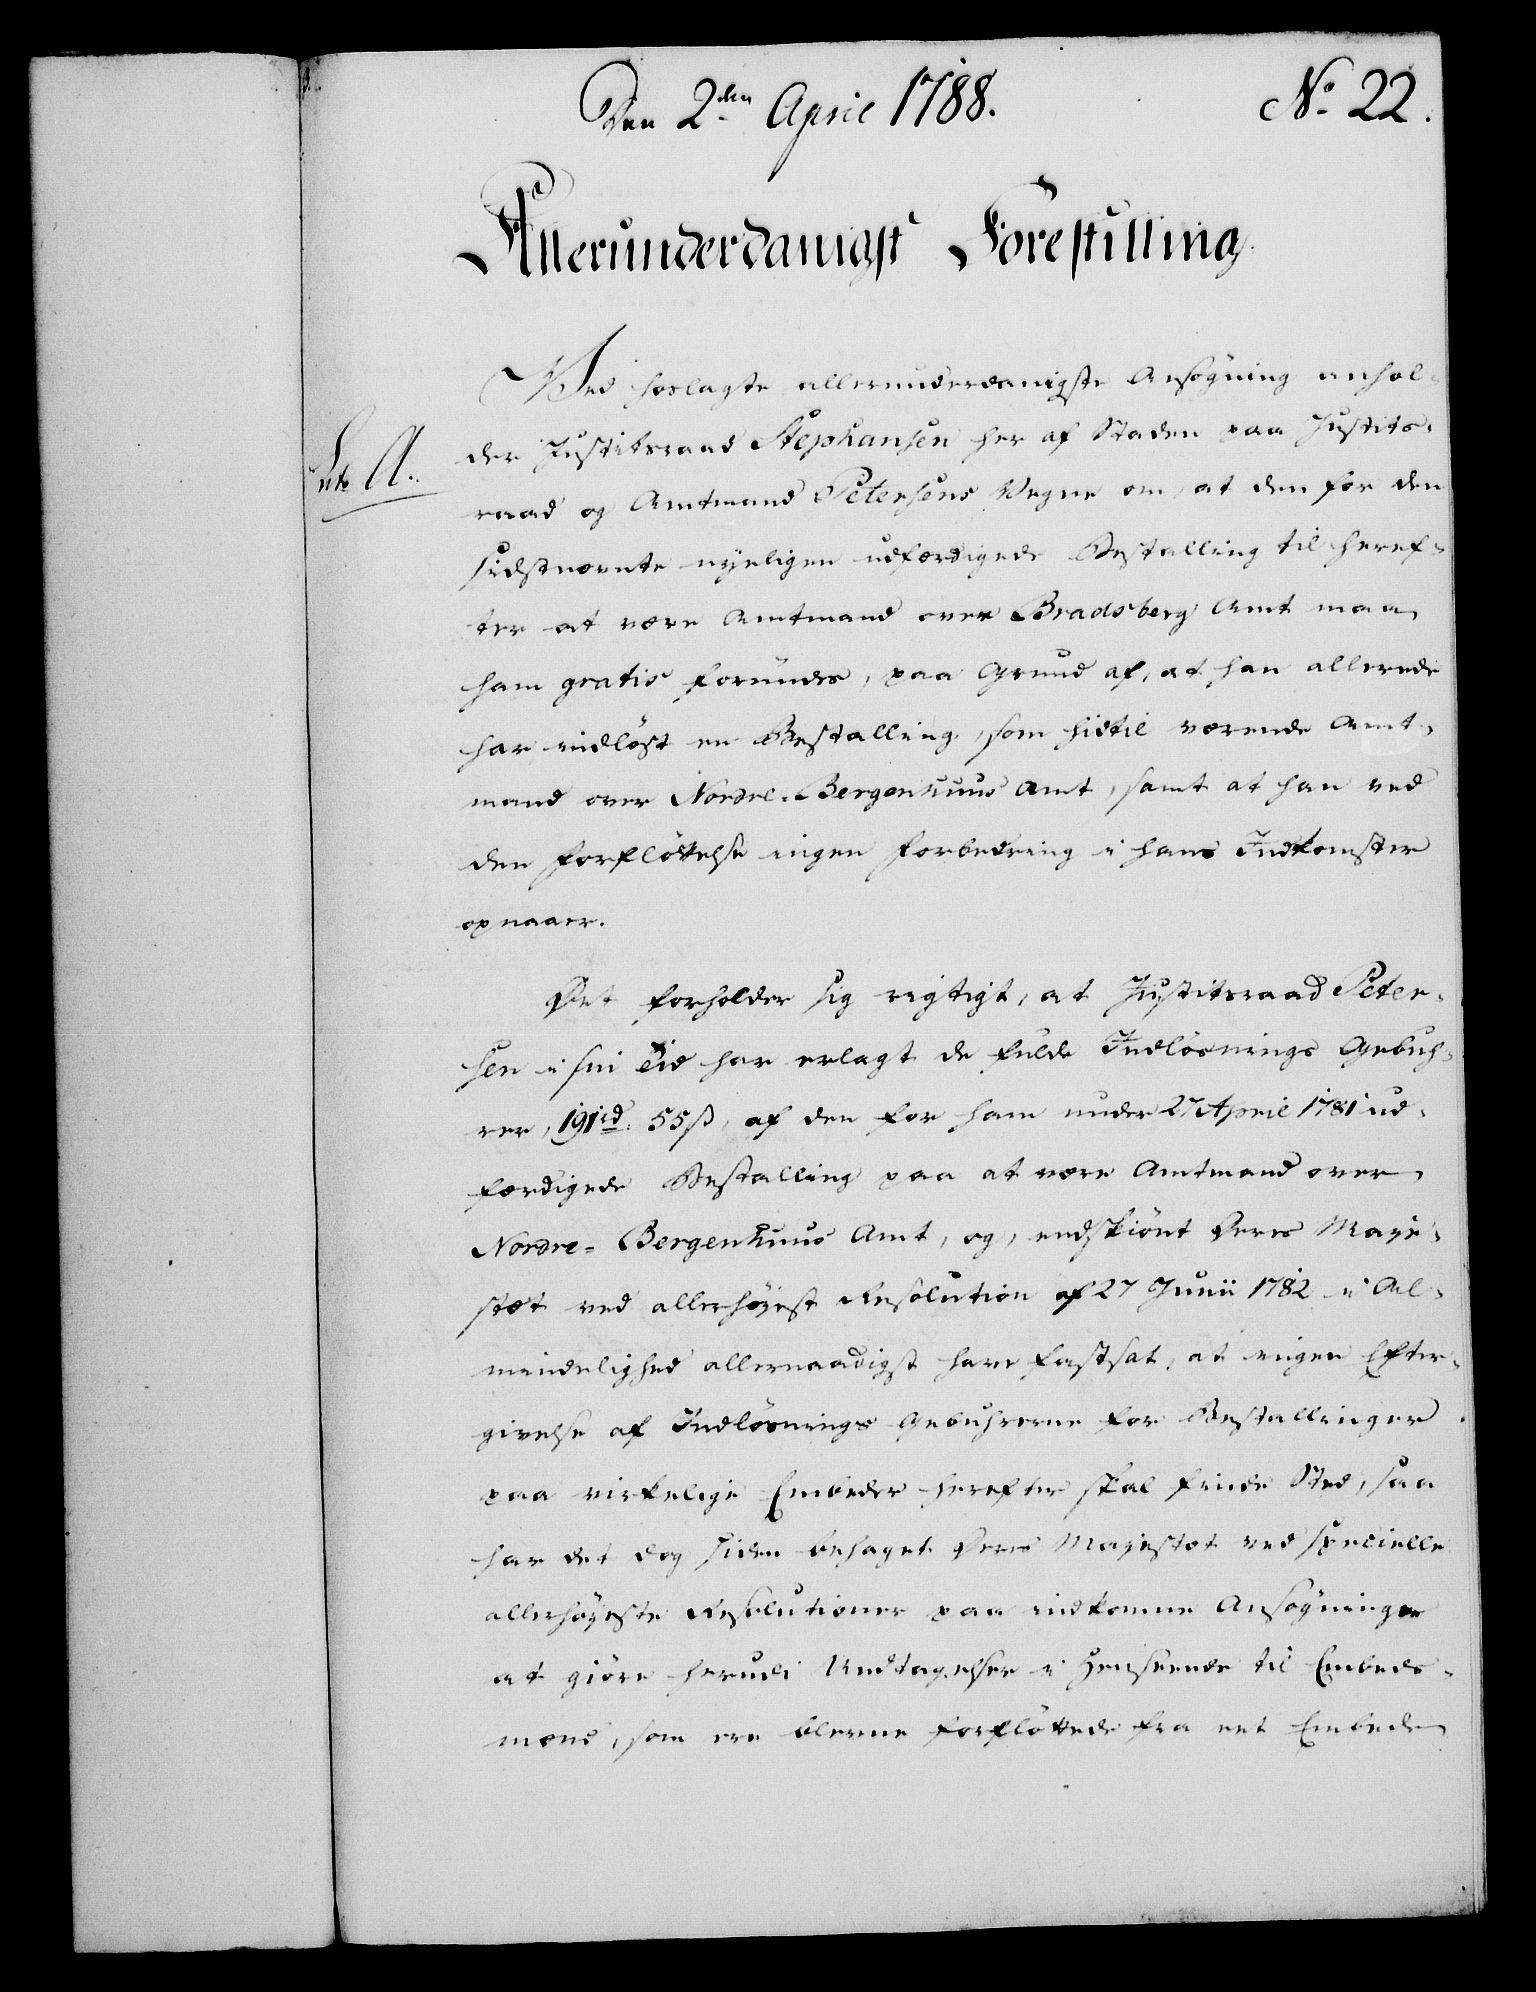 Den 2den April 1788.
No 22.
Allerunderdanigst Forestilling.
Ved hoslagte allerunderdanigste Ansøgning anhol-
der Justitsraad Stephansen her af Staden paa Justits-
Lit. A.
raad og Amtmand Petersens Vegne om, at den for den
sidstnævnte nyeligen udfærdigede Bestalling til heref-
ter at være Amtmand over Bradsberg Amt maa
ham gratis forundes, paa Grund af, at han allerede
har indløst en Bestalling, som hidtil værende Amt-
mand over Nordre-Bergenhuus Amt, samt at han ved
den Forflöttelse ingen Forbedring i hans Indkomster
opnaaer.
Det forholder sig rigtigt, at Justitsraad Peter-
sen i sin Tid har erlagt de fulde Indløsnings Gebuh-
rer, 191 rd 55 ß, af den for ham under 27 April 1781 ud-
færdigede Bestalling paa at være Amtmand over
Nordre-Bergenhuus Amt, og, endskiönt Deres Maje-
stæt ved allerhöyest Resolution af 27 Junii 1782 i Al-
mindelighed allernaadigst have fastsat, at ingen Efter-
givelse af Indløsnings Gebuhrerne for Bestallinger
paa virkelige Embeder herefter skal finde Sted, saa
har det dog siden behaget Deres Majestæt ved specielle
allerhöyeste Resolutioner paa indkomne Ansøgninger
at giöre herudi Undtagelser i Henseende til Embeds-
mænd, som ere blevne forflöttede fra eet Embede